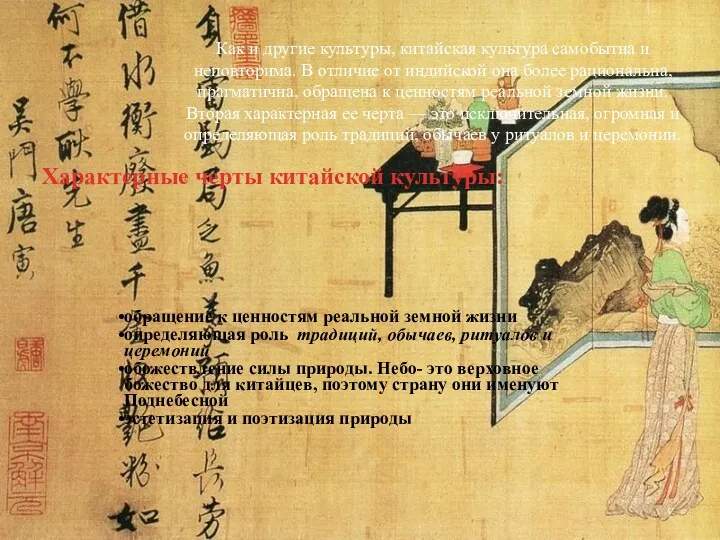 Как и другие культуры, китайская культура самобытна и
неповторима. В отличие от индийской она более рациональна,
прагматична, обращена к ценностям реальной земной жизни.
Вторая характерная ее черта — это исключительная, огромная и
определяющая роль традиций, обычаев у ритуалов и церемонии.
Характерные черты китайской культуры:
•обращение к ценностям реальной земной жизни
•определяющая роль традиций, обычаев, ритуалов и
церемоний
•обожествление силы природы. Небо- это верховное
божество для китайцев, поэтому страну они именуют
Поднебесной
•эстетизация и поэтизация природы
局乏魚羹預給長勞
借水衡廢盡千金收艷粉如
何不學先生
吳門唐寅